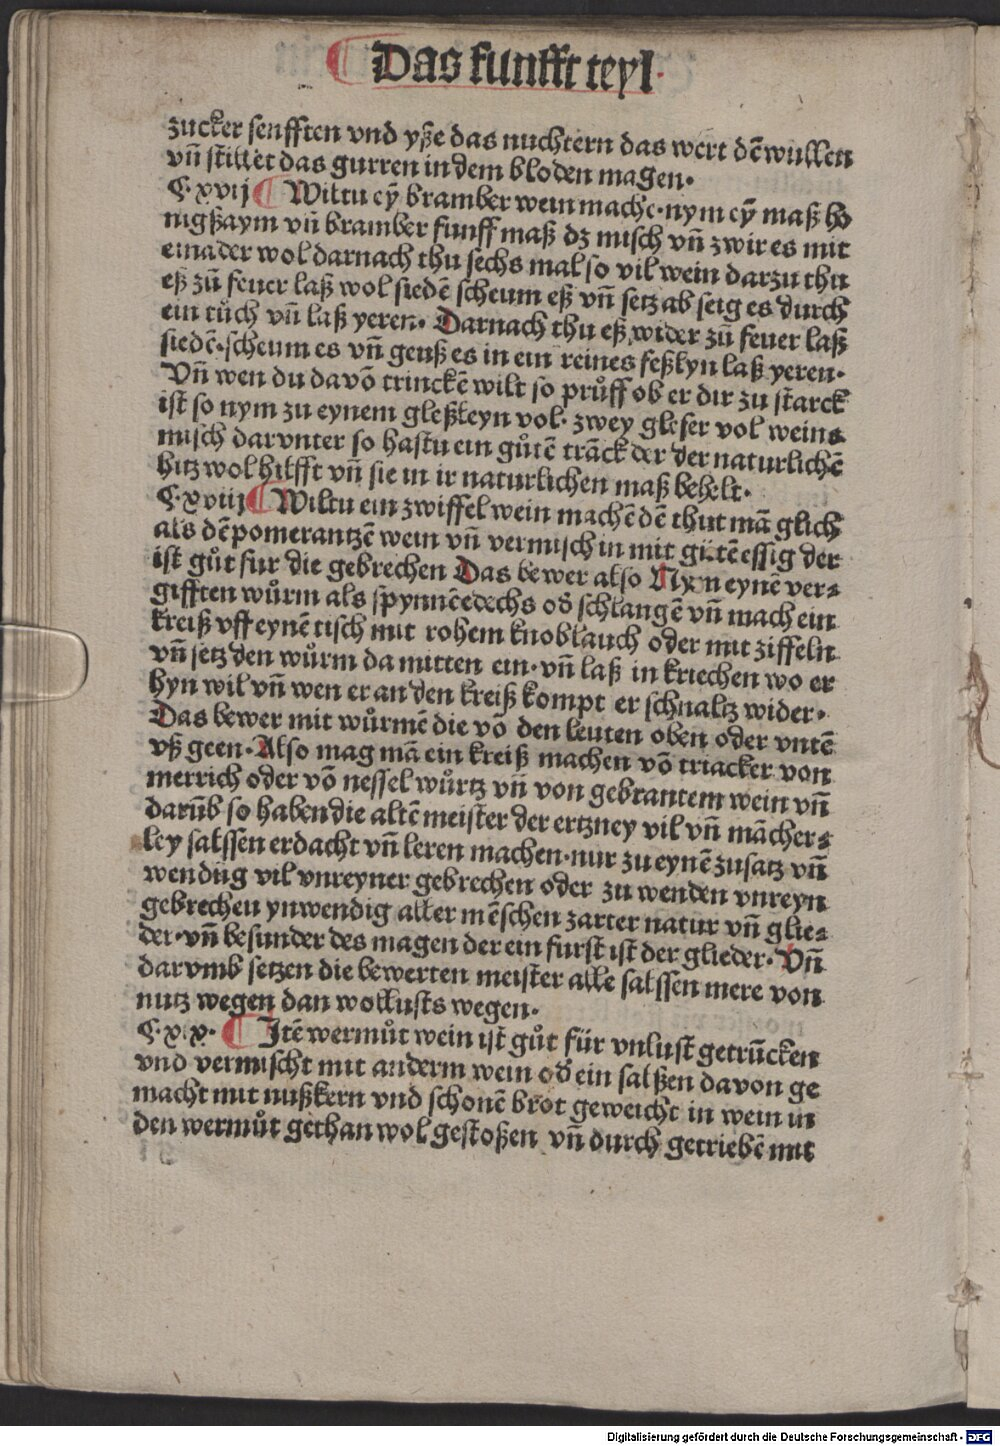 Das funfft teyl·
zucker senfften vnd yße das nuchtern das wert dē wullen
vn̄ stillet das gurren in dem bloden magen·
C·xvij Wiltu eȳ bramber wein mache·nym eȳ maß ho
nigßaym vn̄ bramber funff maß dz misch vn̄ zwir es mit
einader wol darnach thu sechs mal so vil wein darzu thu
eß zū feuer laß wol siedē scheum eß vn̄ setz ab seig es durch
ein tůch vn̄ laß yeren· Darnach thu eß wider zū feuer laß
siedē·scheum es vn̄ geuß es in ein reines feßlyn laß yeren·
Vn̄ wen du davō trinckē wilt so průff ob er dir zu starck
ist so nym zu eynem gleßleyn vol· zwey gleser vol weins
misch darvnter so hastu ein gůtē trāck der der naturlichē
hitz wol hilfft vn̄ sie in ir naturlichen maß behelt·
C·xviij Wiltu ein zwiffel wein machē dē thut mā glich
als dē pomerantzē wein vn̄ vermisch in mit gůtē essig der
ist gůt fur die gebrechen Das bewer also Nym eynē ver⸗
gifften wůrm als spynnē edechs od̓ schlangē vn̄ mach ein
kreiß vff eynē tisch mit rohem knoblauch oder mit ziffeln
vn̄ setz den wůrm da mitten ein·vn̄ laß in kriechen wo er
hyn wil vn̄ wen er an den kreiß kompt er schnaltz wider·
Das bewer mit wůrmē die vō den leuten oben oder vntē
vß geen·Also mag mā ein kreiß machen vō triacker von
merrich oder vō nessel wůrtz vn̄ von gebrantem wein vn̄
darūb so haben die altē meister der ertzney vil vn̄ mācher⸗
ley salssen erdacht vn̄ leren machen·nur zu eynē zusatz vn̄
wendūg vil vnreyner gebrechen oder zu wenden vnreyn
gebrechen ynwendig aller mēschen zarter natur vn̄ glie⸗
der·vn̄ besunder des magen der ein furst ist der glieder·Vn̄
darvmb setzen die bewerten meister alle salssen mere von
nutz wegen dan wollusts wegen·
C·xix· Itē wermůt wein ist gůt für vnlust getrūcken
vnd vermischt mit anderm wein od̓ ein salßen davon ge
macht mit nußkern vnd schonē brot geweicht in wein in
den wermůt gethan wol gestoßen vn̄ durch getriebē mit
Digitalisierung gefördert durch die Deutsche Forschungsgemeinschaft - DFG